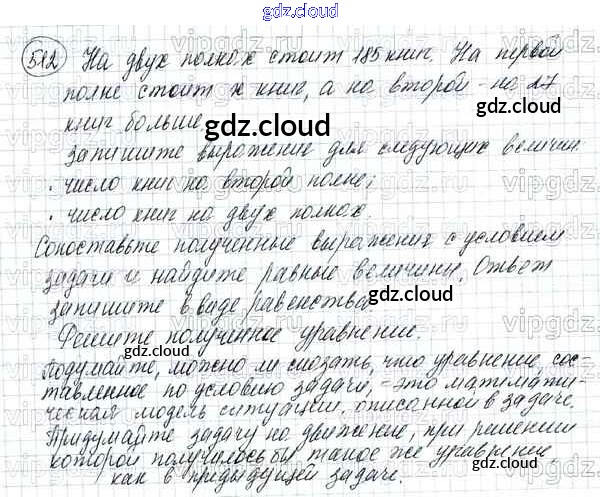 gdz.cloud
582 На двух полках стоит 185 книг. На первой
полке стоит x книг, а на второй - на 27
книг больше.
gdz.cloud
Запишите выражение для следующих величин:
· число книг на второй полке;
· число книг на двух полках.
gdz.cloud
Сопоставьте полученные выражения с условием
задачи и найдите равные величины. Ответ
запишите в виде равенства.
gdz.cloud
Решите полученное уравнение.
gdz.cloud
Подумайте, можно ли сказать, что уравнение, сос-
тавленное по условию задачи, - это математи-
ческая модель ситуации, описанной в задаче.
gdz.cloud
Придумайте задачу на движение, при решении
которой получилось бы такое же уравнение
как в предыдущей задаче.
gdz.cloud